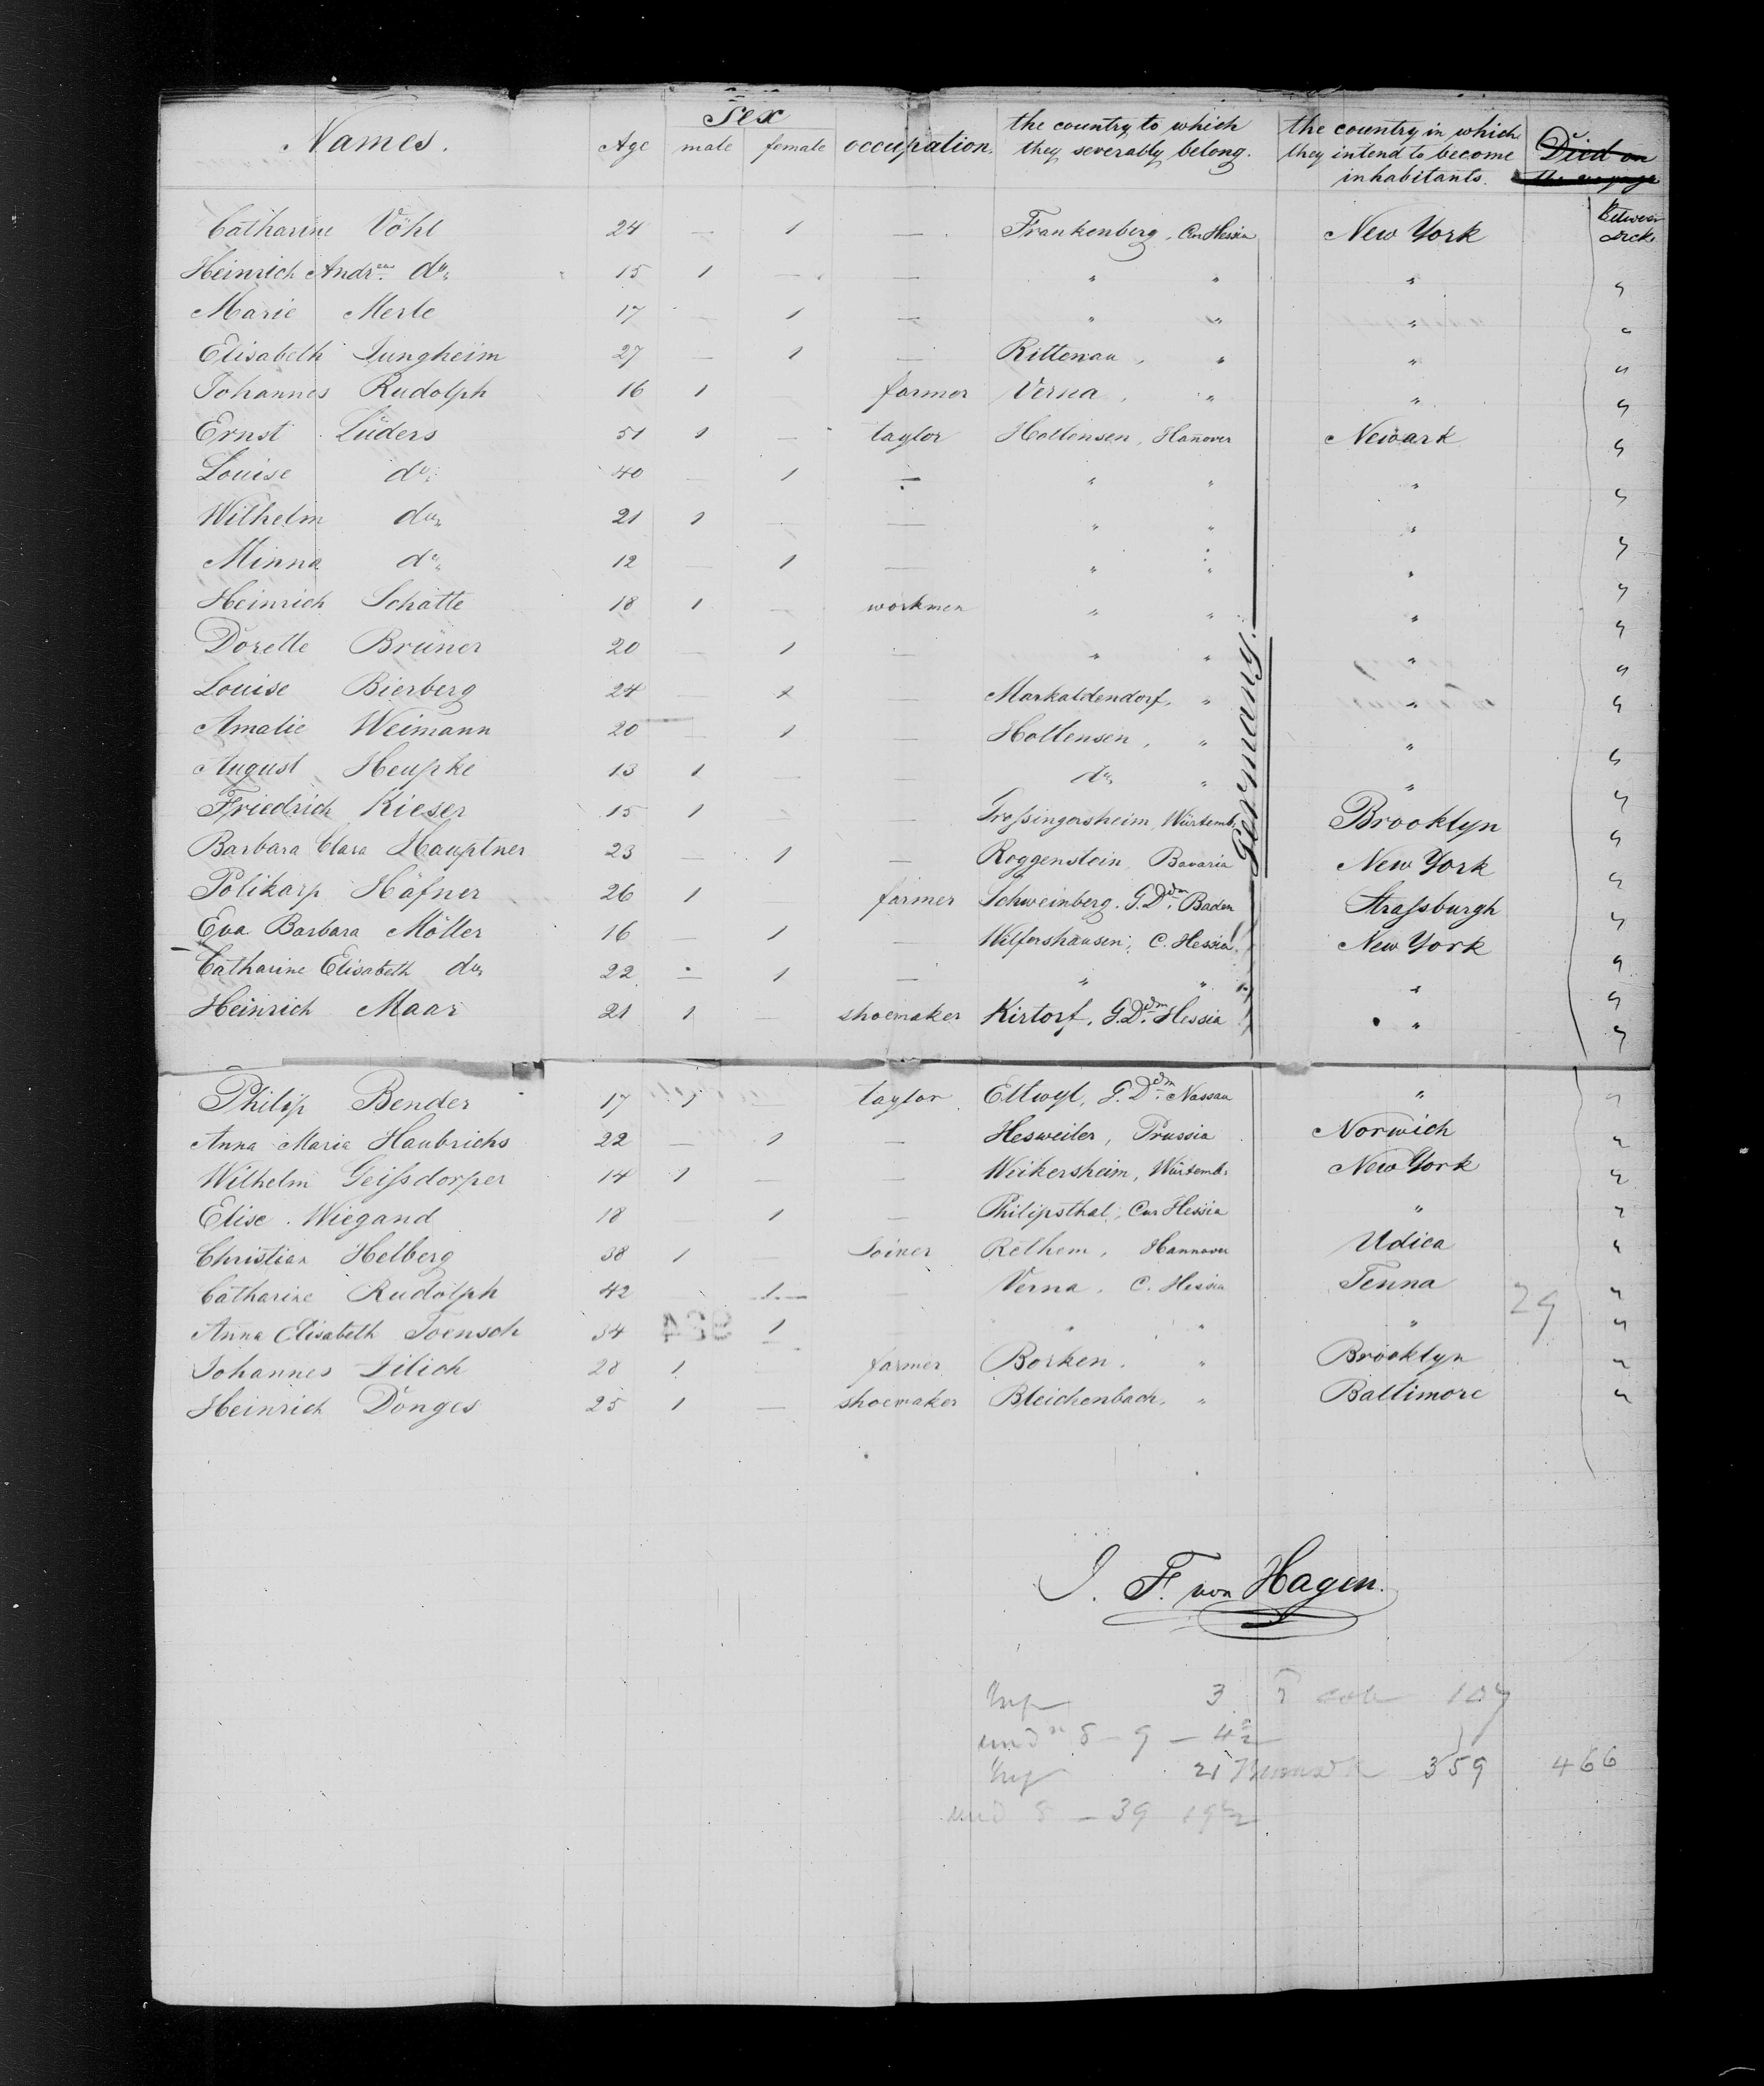 Names. Age Sex male female occupation. the country to which they severally belong. the country in which they intend to become inhabitants. Died on the voyage
Catharine Vöhl 24 — 1 — Frankenberg, Cur Hessia New York Between Decks
Heinrich Andreas do. 15 1 — — " " " "
Marie Merle 17 — 1 — " " " "
Elisabeth Jungheim 27 — 1 — " " "
Johannes Rudolph 16 1 farmer Verna, " " "
Ernst Lüders 51 1 — taylor Hollensen, Hanover Newark "
Louise do. 40 — 1 — " " " "
Wilhelm do. 21 1 — — " " " "
Minna do. 12 1 — " " " "
Heinrich Schatte 18 1 — workmen " " " "
Dorette Brüner 20 — 1 — " " " "
Louise Bierberg 24 — 1 Markoldendorf, " " "
Amalie Weimann 20 — 1 — Hollensen, " " "
August Heupke 13 1 — — do. " " "
Friedrich Kieser 15 1 — — Großingersheim, Würtemb. Brooklyn "
Barbara Clara Hauptner 23 — 1 — Roggenstein, Bavaria New York "
Polikarp Häfner 26 1 farmer Schweinberg. G.Ddm. Baden Straßburgh "
Eva Barbara Möller 16 — 1 — Wilfershausen, C. Hessia New York "
Catharine Elisabeth do. 22 — 1 — " " " "
Heinrich Maar 21 1 — shoemaker Kirtorf, G.Ddm. Hessia " "
Germany.
Philip Bender 17 1 — taylor Ellwyl, G.Ddm. Nassau " "
Anna Maria Haubrichs 22 — 1 — Hesweiler, Prussia Norwich "
Wilhelm Geißdorper 14 1 — — Weikersheim, Würtemb. New York "
Elise Wiegand 18 — 1 — Philipsthal, Cur Hessia " "
Christian Helberg 38 1 — Joiner Rethem, Hannover Udica "
Catharine Rudolph 42 1 — Verna, C. Hessia Tenna "
Anna Elisabeth Toensch 34 1 " " " 29 "
Johannes Dilich 28 1 farmer Borken. " Brooklyn "
Heinrich Dönges 25 1 — shoemaker Bleichenbach, " Baltimore "
J. F. von Hagen.
3 107
8 — 9 — 4½
21 359 466
8 — 39 19½